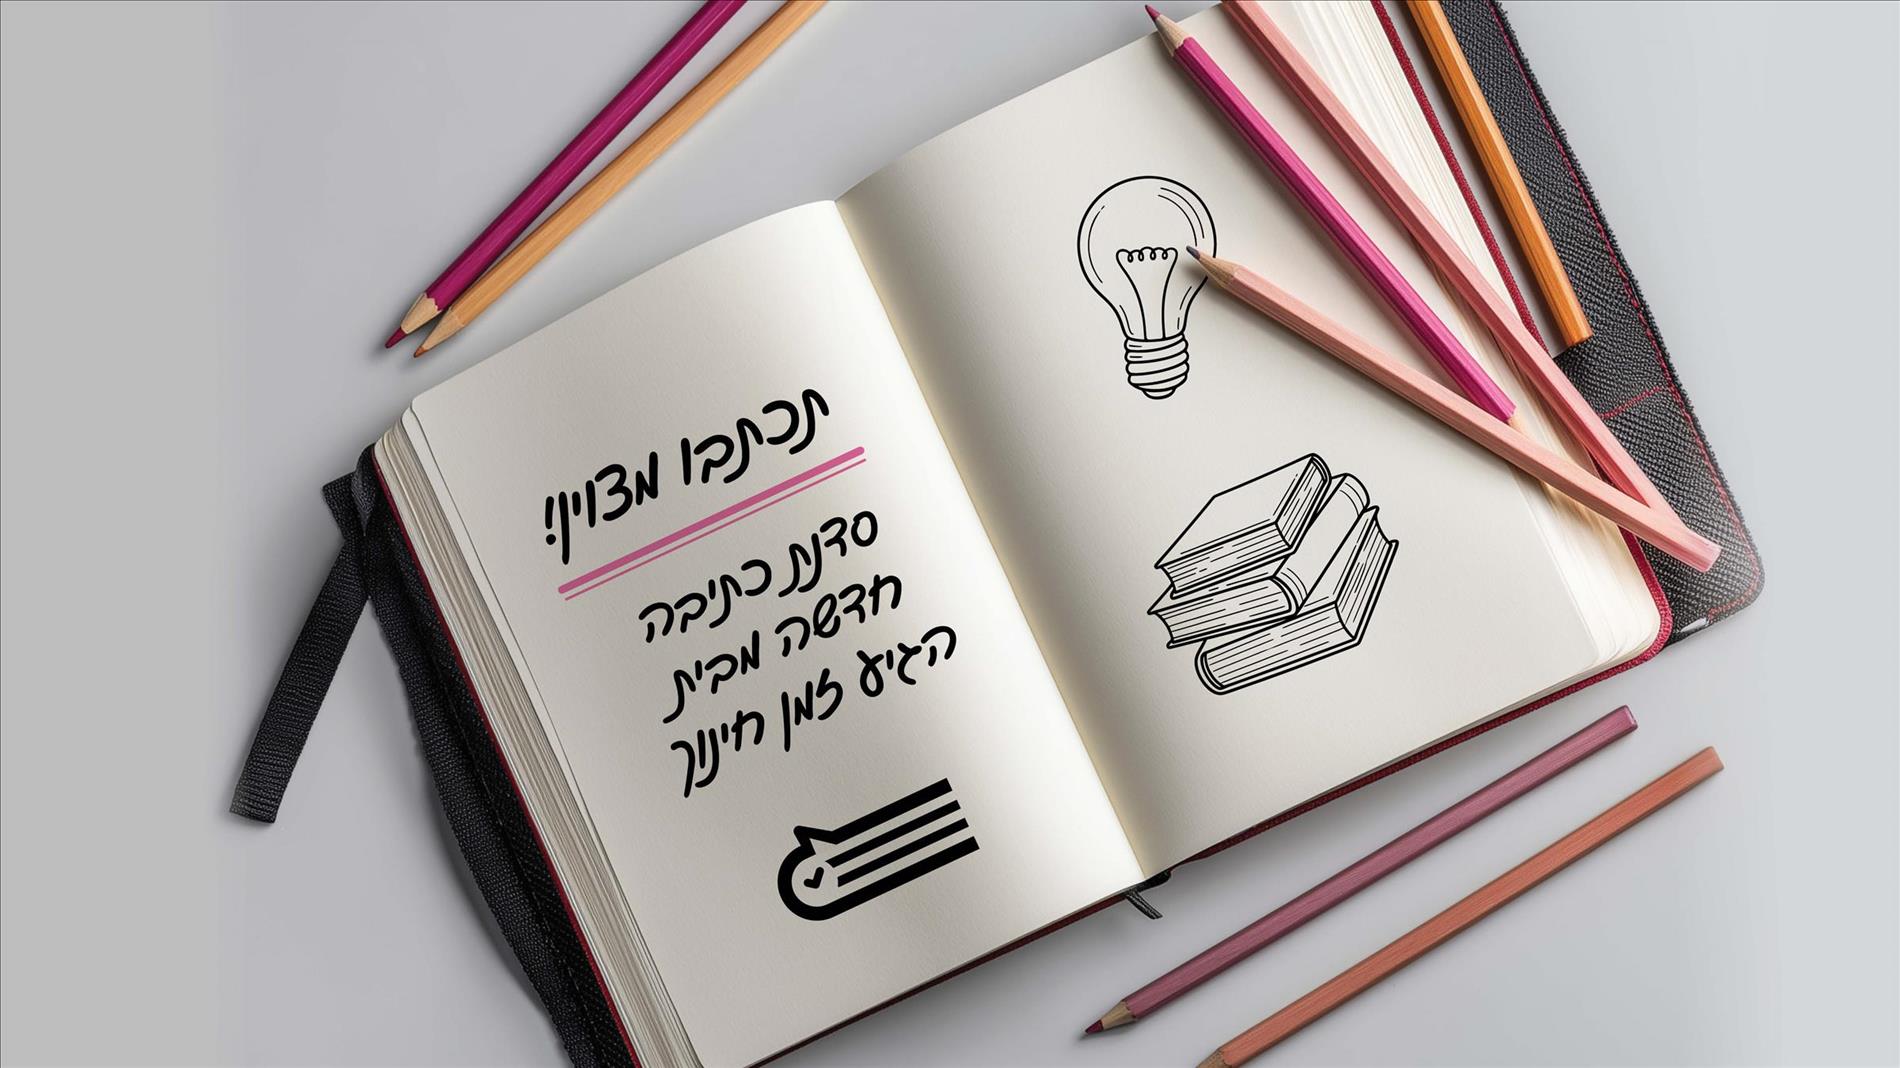 תכתבו מצוין!
סדנת כתיבה
חדשה מבית
הגיע זמן חינוך